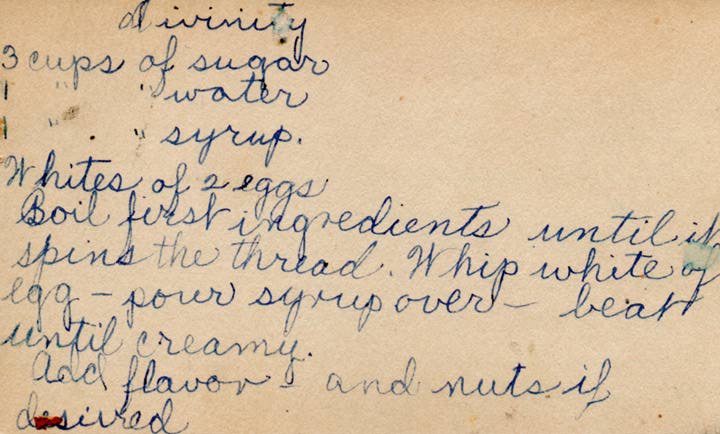 divinity
3 cups of sugar
1 " " water
1 " " syrup.
Whites of 2 eggs
Boil first ingredients until it
spins the thread. Whip white of
egg - pour syrup over - beat
until creamy.
Add flavor - and nuts if
desired